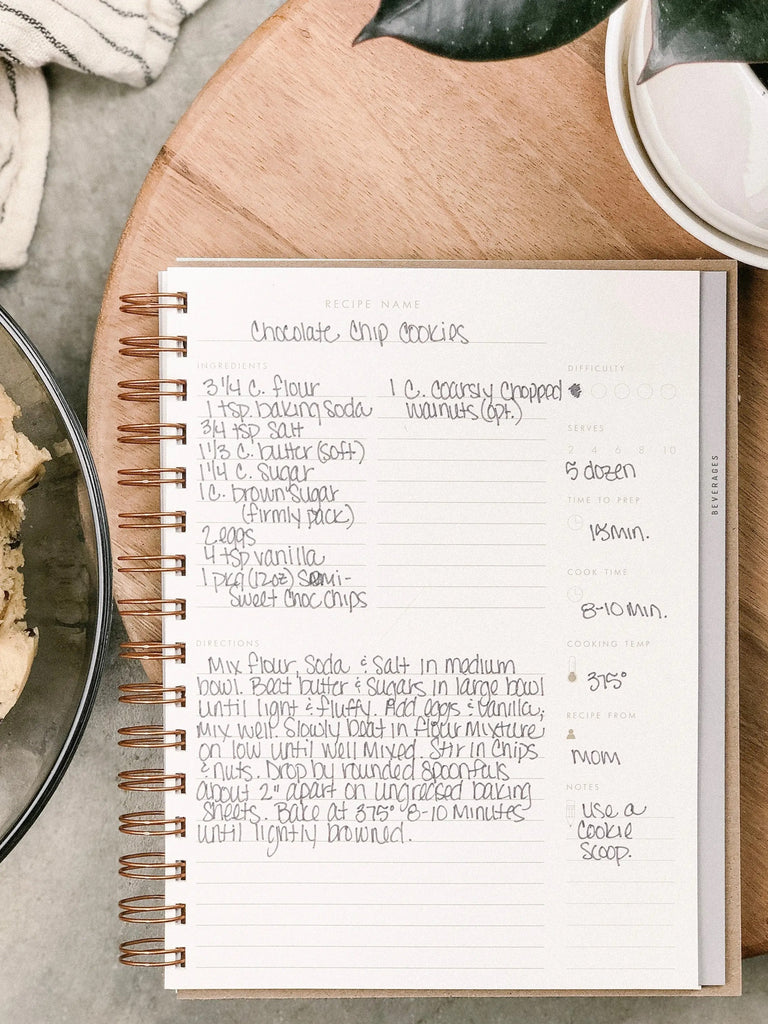 RECIPE NAME
Chocolate Chip Cookies
INGREDIENTS
3 1/4 C. flour
1 tsp. baking soda
3/4 tsp salt
1 1/3 C. butter (soft)
1 1/4 C. sugar
1 C. brown sugar
(firmly pack)
2 eggs
4 tsp vanilla
1 pkg (12oz) semi-
sweet choc chips
1 C. coarsly chopped
walnuts (opt.)
DIFFICULTY
SERVES
2 4 6 8 10
5 dozen
TIME TO PREP
15 min.
COOK TIME
8-10 min.
COOKING TEMP
375°
RECIPE FROM
mom
NOTES
use a
cookie
scoop.
DIRECTIONS
Mix flour, soda & salt in medium
bowl. Beat butter & sugars in large bowl
until light & fluffy. Add eggs & vanilla;
mix well. Slowly beat in flour mixture
on low until well mixed. Stir in chips
& nuts. Drop by rounded spoonfuls
about 2" apart on ungreased baking
sheets. Bake at 375° 8-10 minutes
until lightly browned.
BEVERAGES